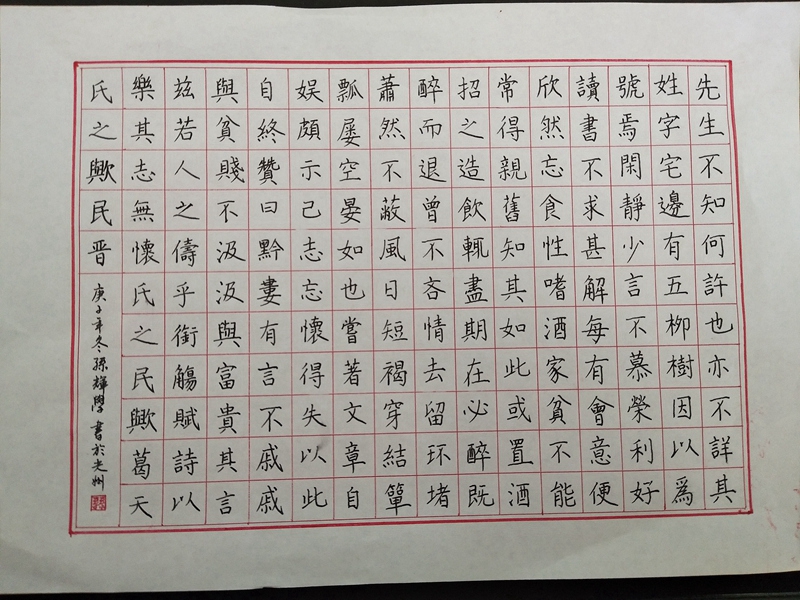 先生不知何許也亦不詳其
姓字宅邊有五柳樹因以爲
號焉閑靜少言不慕榮利好
讀書不求甚解每有會意便
欣然忘食性嗜酒家貧不能
常得親舊知其如此或置酒
招之造飲輒盡期在必醉既
醉而退曾不吝情去留环堵
蕭然不蔽風日短褐穿結簞
瓢屢空晏如也嘗著文章自
娱頗示己志忘懷得失以此
自終贊曰黔婁有言不戚戚
與貧賤不汲汲與富貴其言
兹若人之儔乎銜觴賦詩以
樂其志無懷氏之民歟葛天
氏之歟民晋
庚子年冬孫輝學書於光州